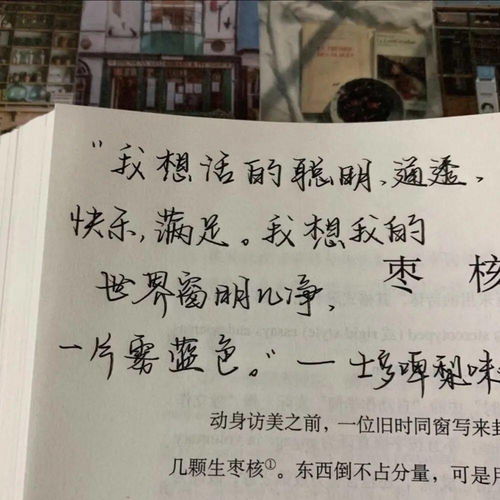 "我想活的聪明、通透、
快乐,满足。我想我的
枣 核
世界窗明几净,
一片雾蓝色。"一
动身访美之前，一位旧时同窗写来封
几颗生枣核①。东西倒不占分量，可是用